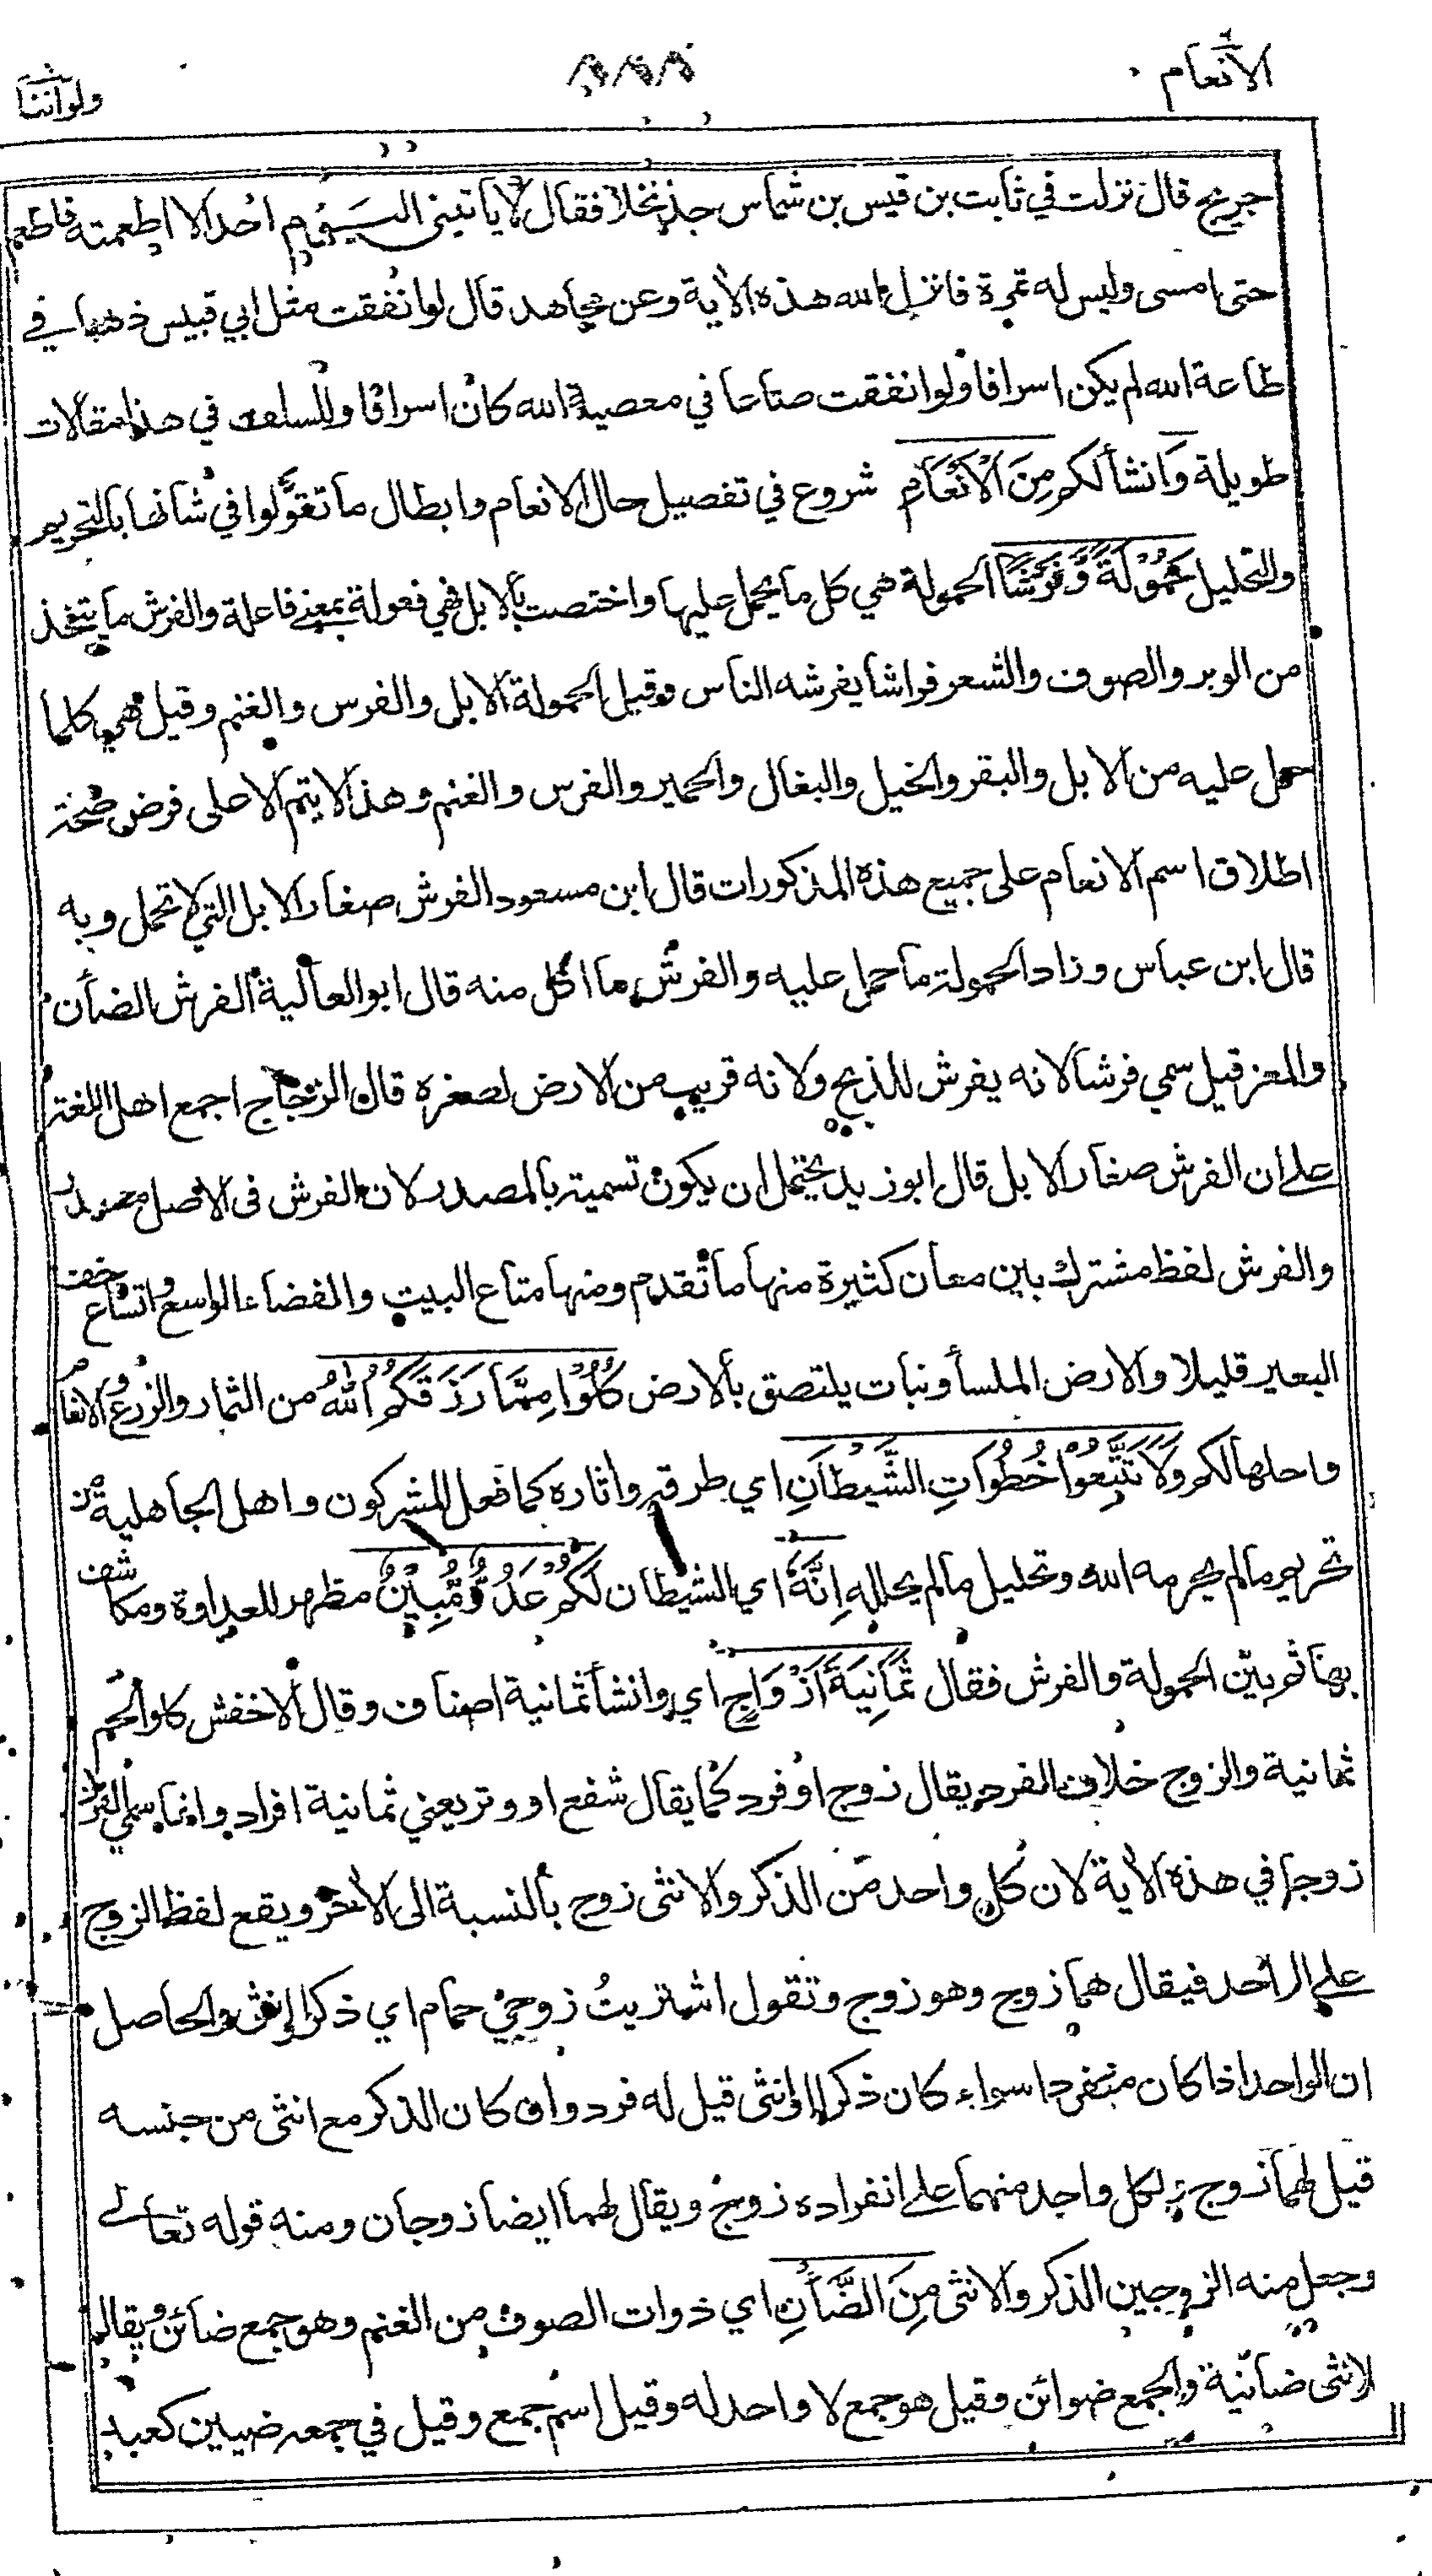 الانعام
ولواننا
جريج قال نزلت في ثابت بن قيس بن شماس جذ نخلا فقال لا ياتيني اليوم احد الا اطعمته فاطعم
حتى امسى وليس له تمرة فانزل الله هذه الاية وعن مجاهد قال لو انفقت مثل ابي قبيس ذهبا في
طاعة الله لم يكن اسرافا ولو انفقت صاعا في معصية الله كان اسرافا وللسلف في هذا مقالات
طويلة وَاَنشأ لكم مِنَ الْاَنْعَامِ شروع في تفصيل حال الانعام وابطال ما تقوّلوا في شانها بالتحريم
والتحليل حَمُوْلَةً وَّفَرْشًا الحمولة هي كل ما يحمل عليها واختصت بالابل فهي فعولة بمعنى فاعلة والفرش ما يتخذ
من الوبر والصوف والشعر فراشا يفرشه الناس وقيل الحمولة الابل والفرس والغنم وقيل هي كلما
حمل عليه من الابل والبقر والخيل والبغال والحمير والفرس والغنم وهذا لا يتم الا على فرض صحة
اطلاق اسم الانعام على جميع هذه المذكورات قال ابن مسعود الفرش صغار الابل التي لا تحمل وبه
قال ابن عباس وزاد الحمولة ما حمل عليه والفرش ما اكل منه قال ابو العالية الفرش الضأن
والمعز قيل سمي فرشا لانه يفرش للذبح ولانه قريب من الارض لصغره قال الزجاج اجمع اهل اللغة
على ان الفرش صغار الابل قال ابو زيد يحتمل ان يكون تسمية بالمصدر لان الفرش فى الاصل مصدر
والفرش لفظ مشترك بين معان كثيرة منها ما تقدم ومنها متاع البيت والفضاء الواسع واتساع خف
البعير قليلا والارض الملسأ ونبات يلتصق بالارض كُلُوْا مِمَّا رَزَقَكُمُ اللهُ من الثمار والزرع والانعام
واحلها لكم وَلَا تَتَّبِعُوْا خُطُوَاتِ الشَّيْطَانِ اي طرقه واثاره كما فعل المشركون واهل الجاهلية من
تحريم ما لم يحرمه الله وتحليل ما لم يحلله اِنَّهٗ اي الشيطان لَكُمْ عَدُوٌّ مُّبِيْنٌ مظهر للعداوة ومكاشف
بها ثم بيّن الحمولة والفرش فقال ثَمَانِيَةَ اَزْوَاجٍ اي وانشأ ثمانية اصناف وقال الاخفش كلوا لحم
ثمانية والزوج خلاف الفرد يقال زوج او فرد كما يقال شفع او وتر يعني ثمانية افراد وانما سمي الفرد
زوجا في هذه الاية لان كل واحد من الذكر والانثى زوج بالنسبة الى الاخر ويقع لفظ الزوج
على الواحد فيقال هما زوج وهو زوج وتقول اشتريتُ زوجي حمام اي ذكرا وانثى والحاصل
ان الواحد اذا كان منفردا سواء كان ذكرا او انثى قيل له فرد وان كان الذكر مع انثى من جنسه
قيل لهما زوج ولكل واحد منهما على انفراده زوج ويقال لهما ايضا زوجان ومنه قوله تعالى
وجعل منه الزوجين الذكر والانثى مِنَ الضَّأْنِ اي ذوات الصوف من الغنم وهو جمع ضائن ويقال
لانثى ضائنة والجمع ضوائن وقيل هو جمع لا واحد له وقيل اسم جمع وقيل في جمعه ضيين كعبيد